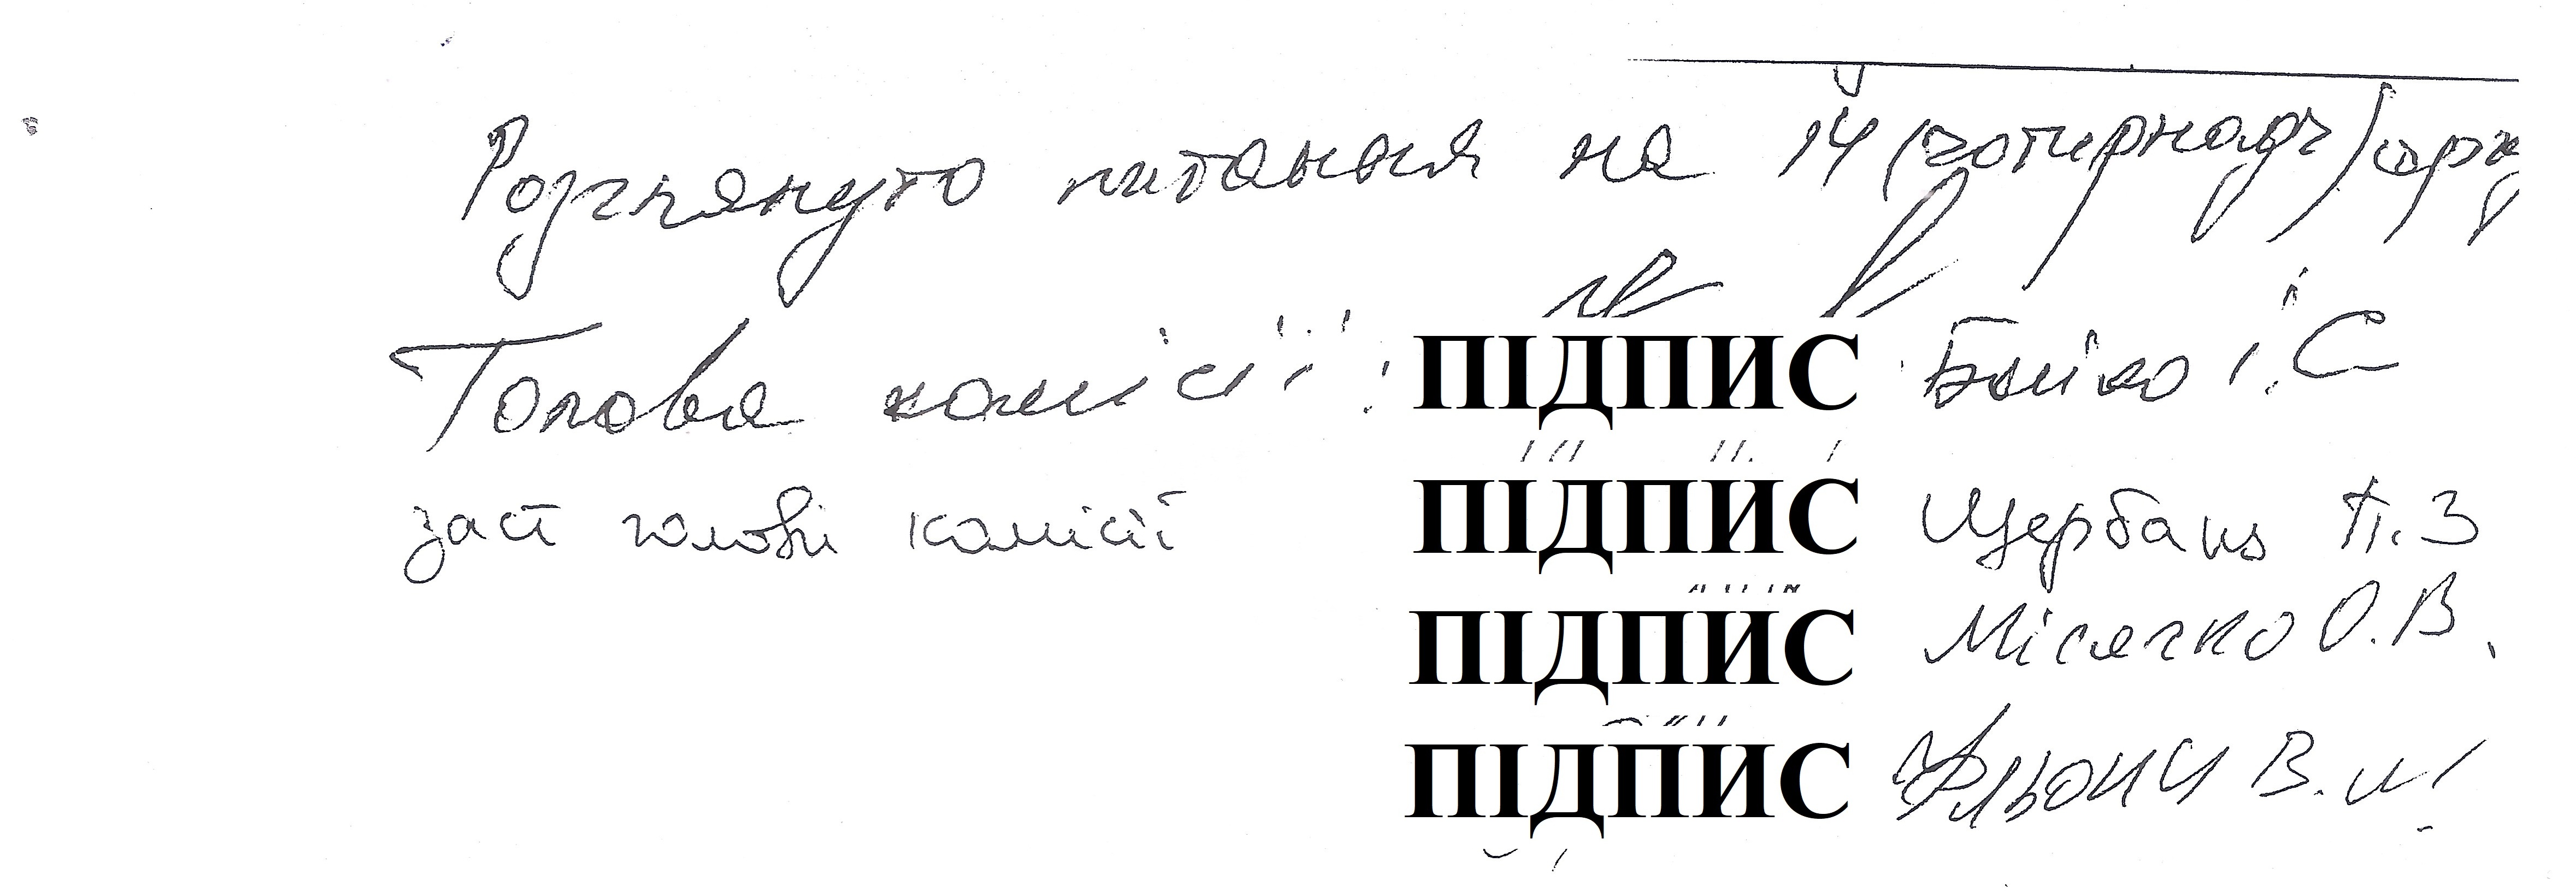 Розглянуто питання на 14 (чотирнадч) арк
Голова комісії: ПІДПИС Бойко І.С
заст голови комісії ПІДПИС Щербань П.З
ПІДПИС Місячко О.В.
ПІДПИС В.